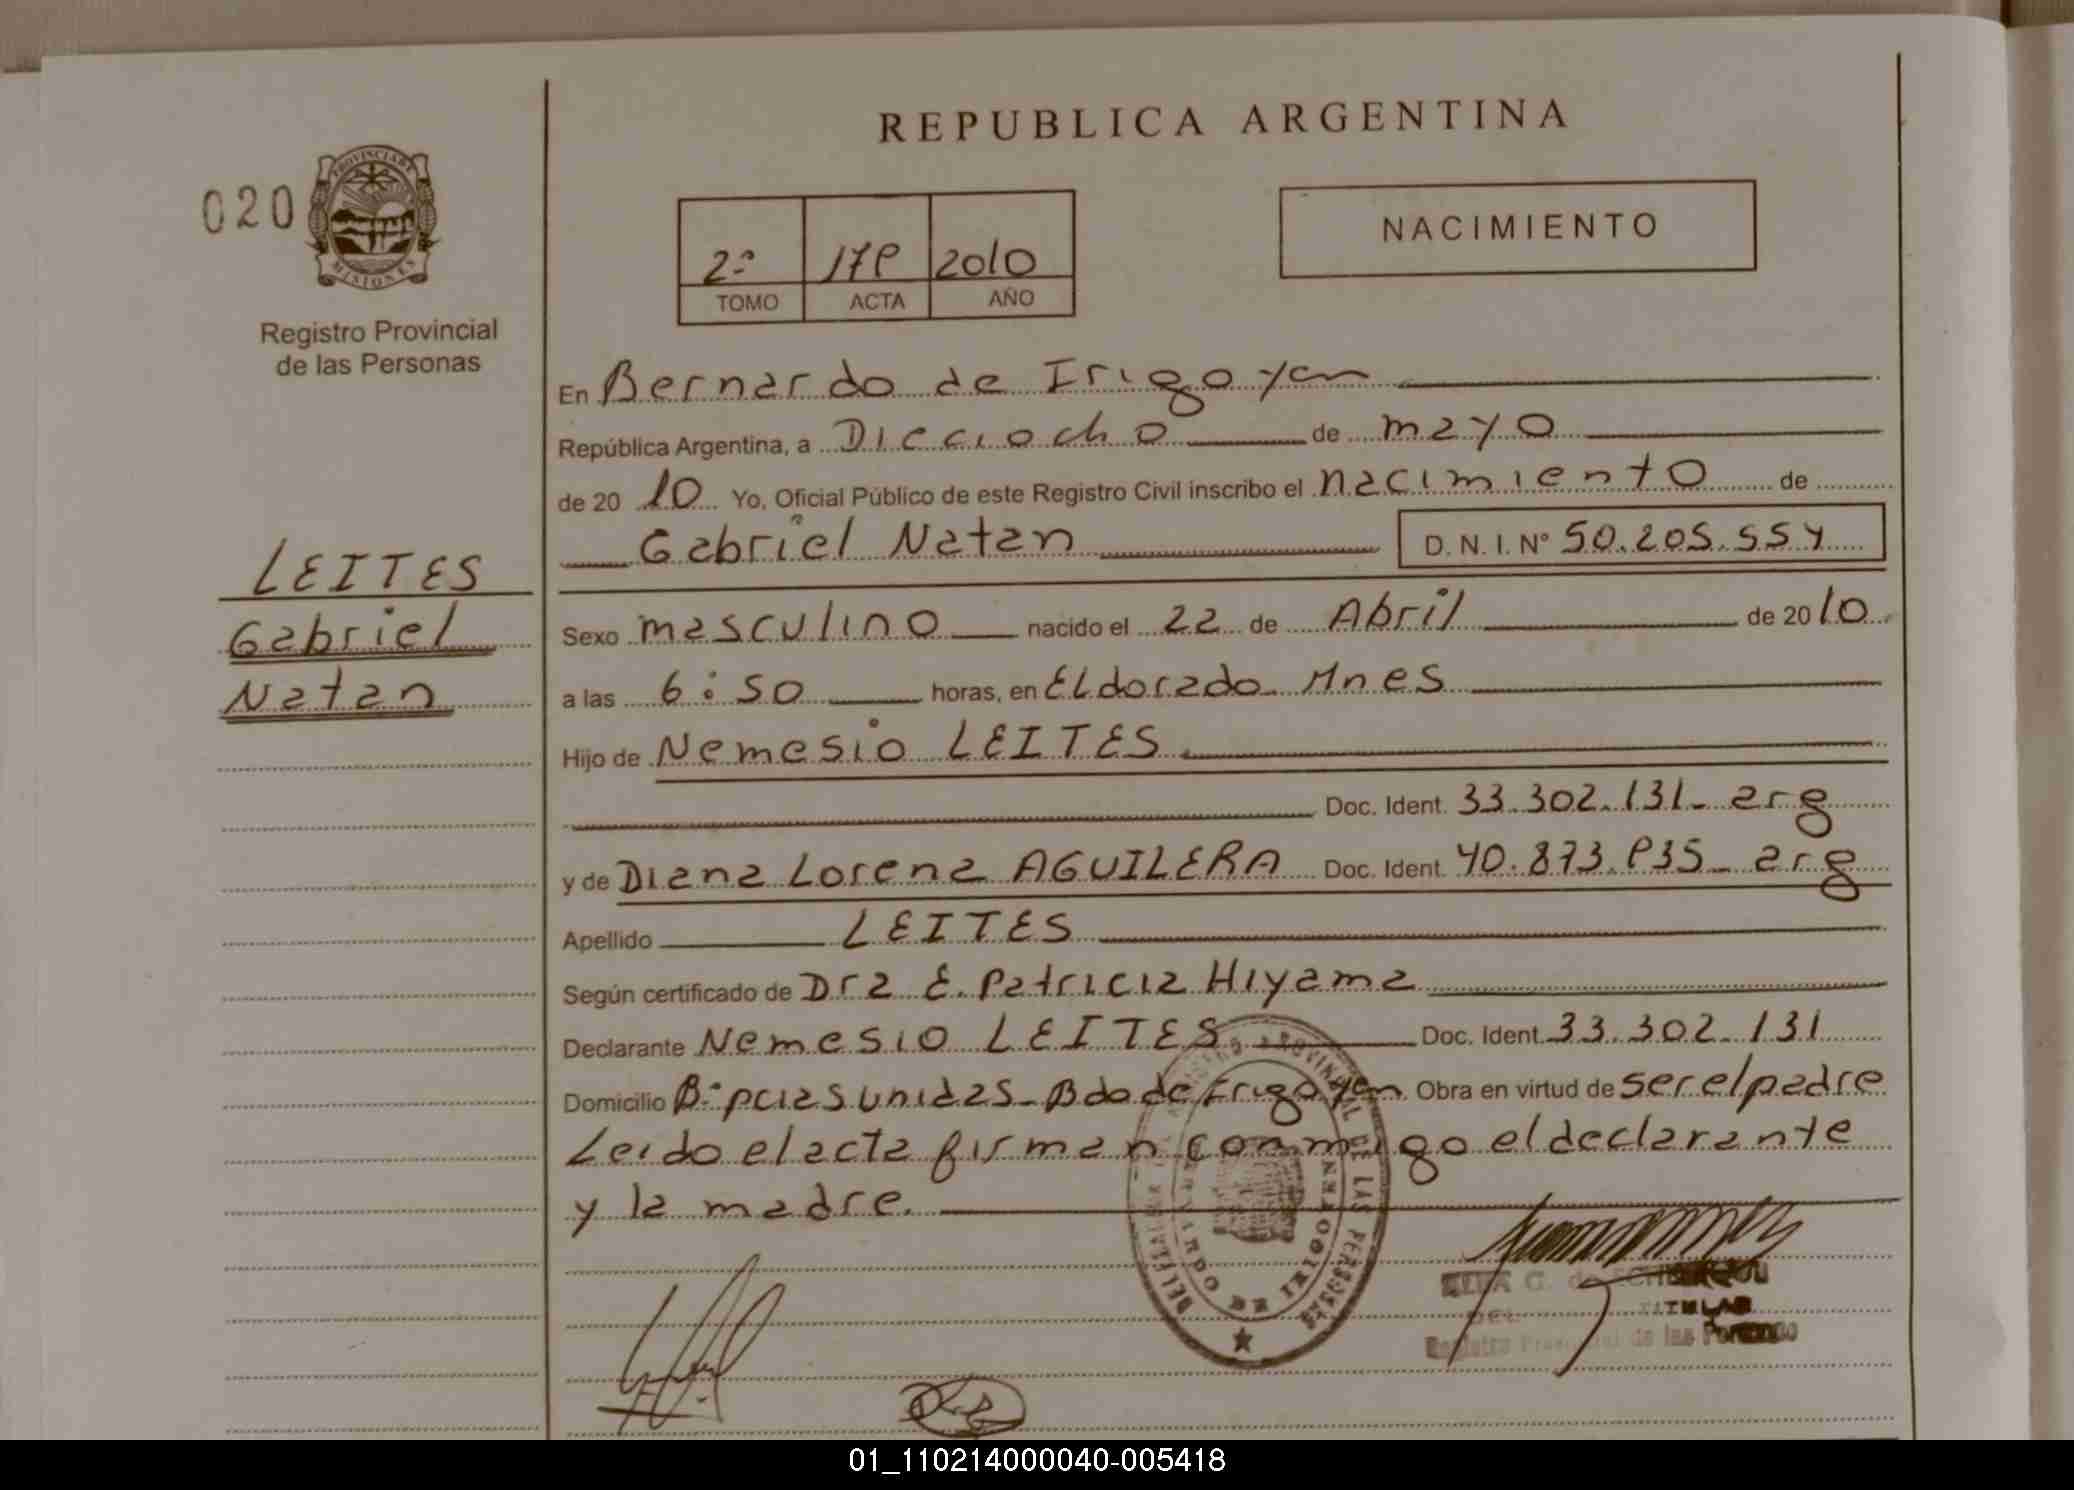 REPUBLICA ARGENTINA
020
PROVINCIA DE
MISIONES
Registro Provincial
de las Personas
2º 17P 2010
TOMO ACTA AÑO
NACIMIENTO
En Bernardo de Irigoyen
República Argentina, a Dieciocho de mayo
de 20 10 Yo, Oficial Público de este Registro Civil inscribo el nacimiento de
Gabriel Natan D.N.I. Nº 50.205.554
LEITES
Gabriel
Natan
Sexo masculino nacido el 22 de Abril de 2010
a las 6:50 horas, en ELdorado Mnes
Hijo de Nemesio LEITES
Doc. Ident. 33.302.131- arg
y de Diana Lorena AGUILERA Doc. Ident. 40.873.P35- arg
Apellido LEITES
Según certificado de Dra E. Patricia Hiyama
Declarante Nemesio LEITES Doc. Ident. 33.302.131
Domicilio Bº pcias unidas- Bdo de Irigoyen Obra en virtud de ser el padre
Leido el acta firman conmigo el declarante
y la madre.
REGISTRO PROVINCIAL DE LAS PERSONAS
TITULAR
Registro Provincial de las Personas
01_110214000040-005418